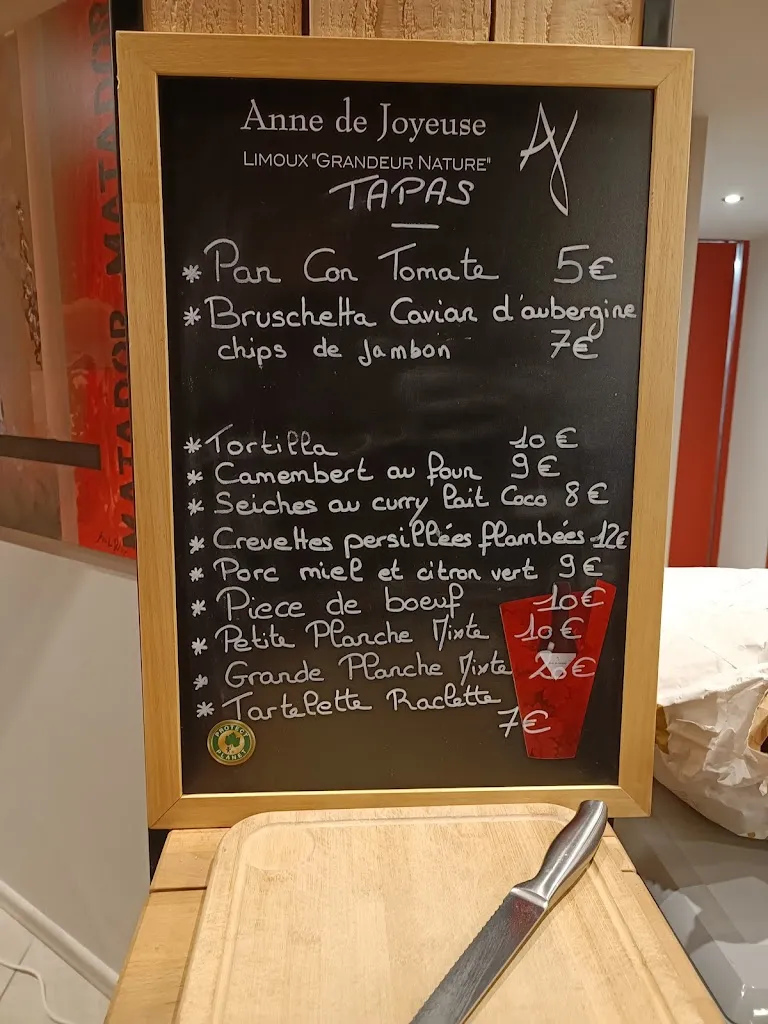 Anne de Joyeuse
AJ
LIMOUX "GRANDEUR NATURE"
TAPAS
* Pan Con Tomate 5€
* Bruschetta Caviar d'aubergine
chips de jambon 7€
* Tortilla 10€
* Camembert au four 9€
* Seiches au curry lait Coco 8€
* Crevettes persillées flambées 12€
* Porc miel et citron vert 9€
* Piece de boeuf 10€
* Petite Planche Mixte 10€
* Grande Planche Mixte €
* Tartelette Raclette
7€
PROTECT
PLANET
MATADOR MATADOR